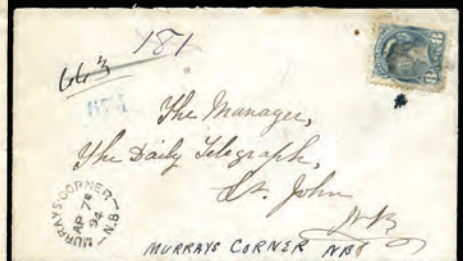 181
663
The Manager,
The Daily Telegraph,
St. John
NB
MURRAYS CORNER
AP 7
94
N.B.
MURRAYS CORNER NB